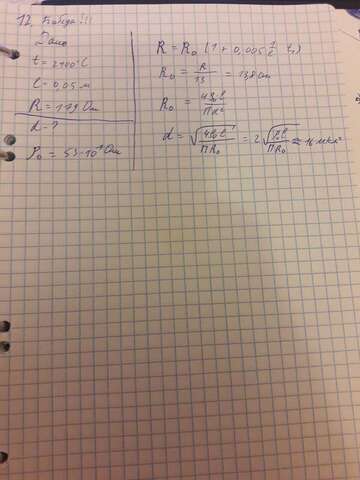 12. Победа!!!
Дано
t = 2400°C
l = 0,05 м
R = 179 Ом
d - ?
ρ₀ = 55·10⁻⁹ Ом
R = R₀ (1 + 0,005 t₁)
R₀ = R/13 = 13,8 Ом
R₀ = 4ρ₀l/πd²
d = √(4ρ₀l/πR₀) = 2√(ρ₀l/πR₀) ≈ 16 мкм